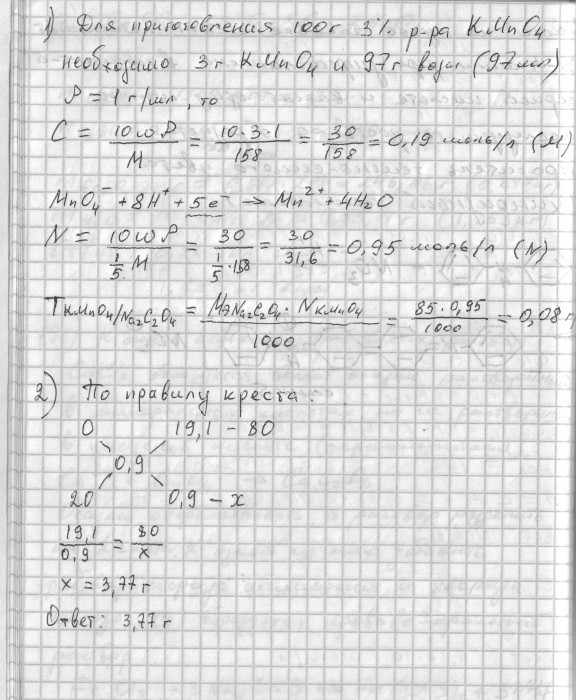 1) Для приготовления 100 г 3% р-ра KMnO4
необходимо 3 г KMnO4 и 97 г воды (97 мл)
ρ = 1 г/мл, то
C = 10ωρ/M = 10·3·1/158 = 30/158 = 0,19 моль/л (M)
MnO4⁻ + 8H⁺ + 5e⁻ → Mn²⁺ + 4H2O
N = 10ωρ/(1/5·M) = 30/(1/5·158) = 30/31,6 = 0,95 моль/л (N)
T KMnO4/Na2C2O4 = Mэ Na2C2O4 · N KMnO4/1000 = 85·0,95/1000 = 0,08 г/
2) По правилу креста:
0 19,1 – 80
0,9
20 0,9 – x
19,1/0,9 = 80/x
x = 3,77 г
Ответ: 3,77 г